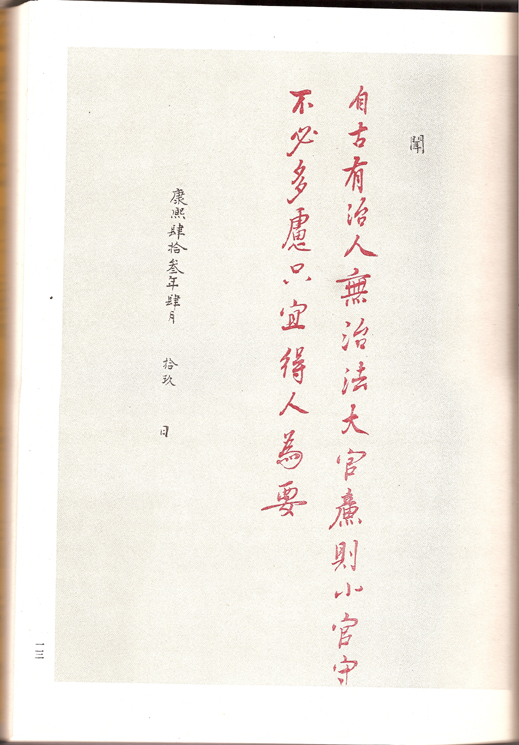 聞
自古有治人無治法大官廉則小官守
不必多慮只宜得人為要
康熙肆拾叁年肆月 拾玖 日
一三